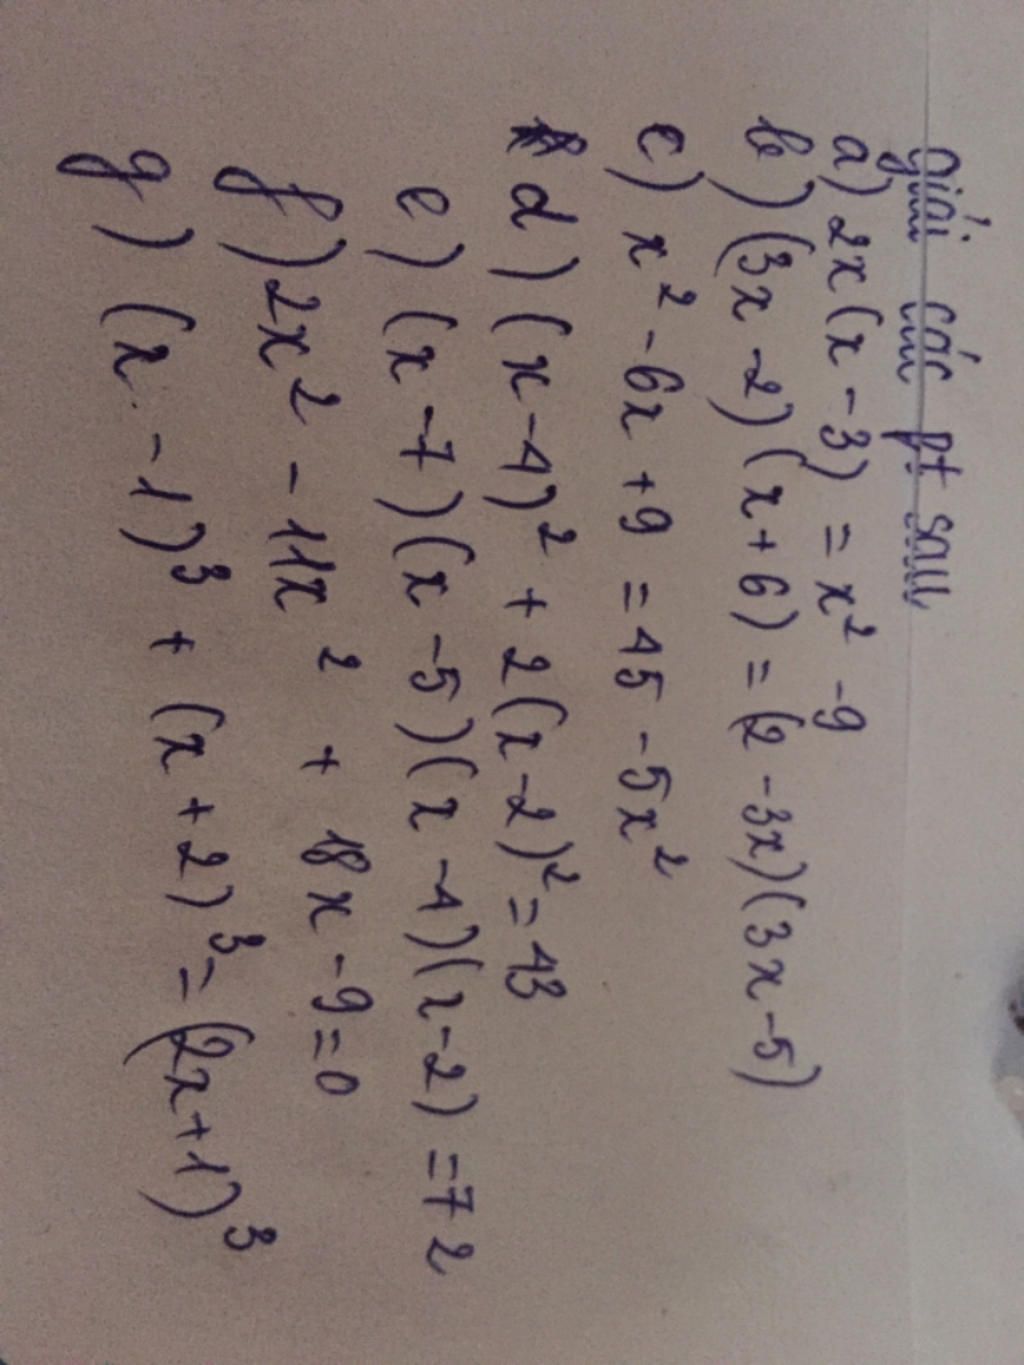 giải các pt sau
a) 2x(x - 3) = x² - 9
b) (3x - 2)(x + 6) = (2 - 3x)(3x - 5)
c) x² - 6x + 9 = 45 - 5x²
d) (x - 4)² + 2(x - 2)² = 43
e) (x - 7)(x - 5)(x - 4)(x - 2) = 72
f) 2x² - 11x² + 18x - 9 = 0
g) (x - 1)³ + (x + 2)³ = (2x + 1)³